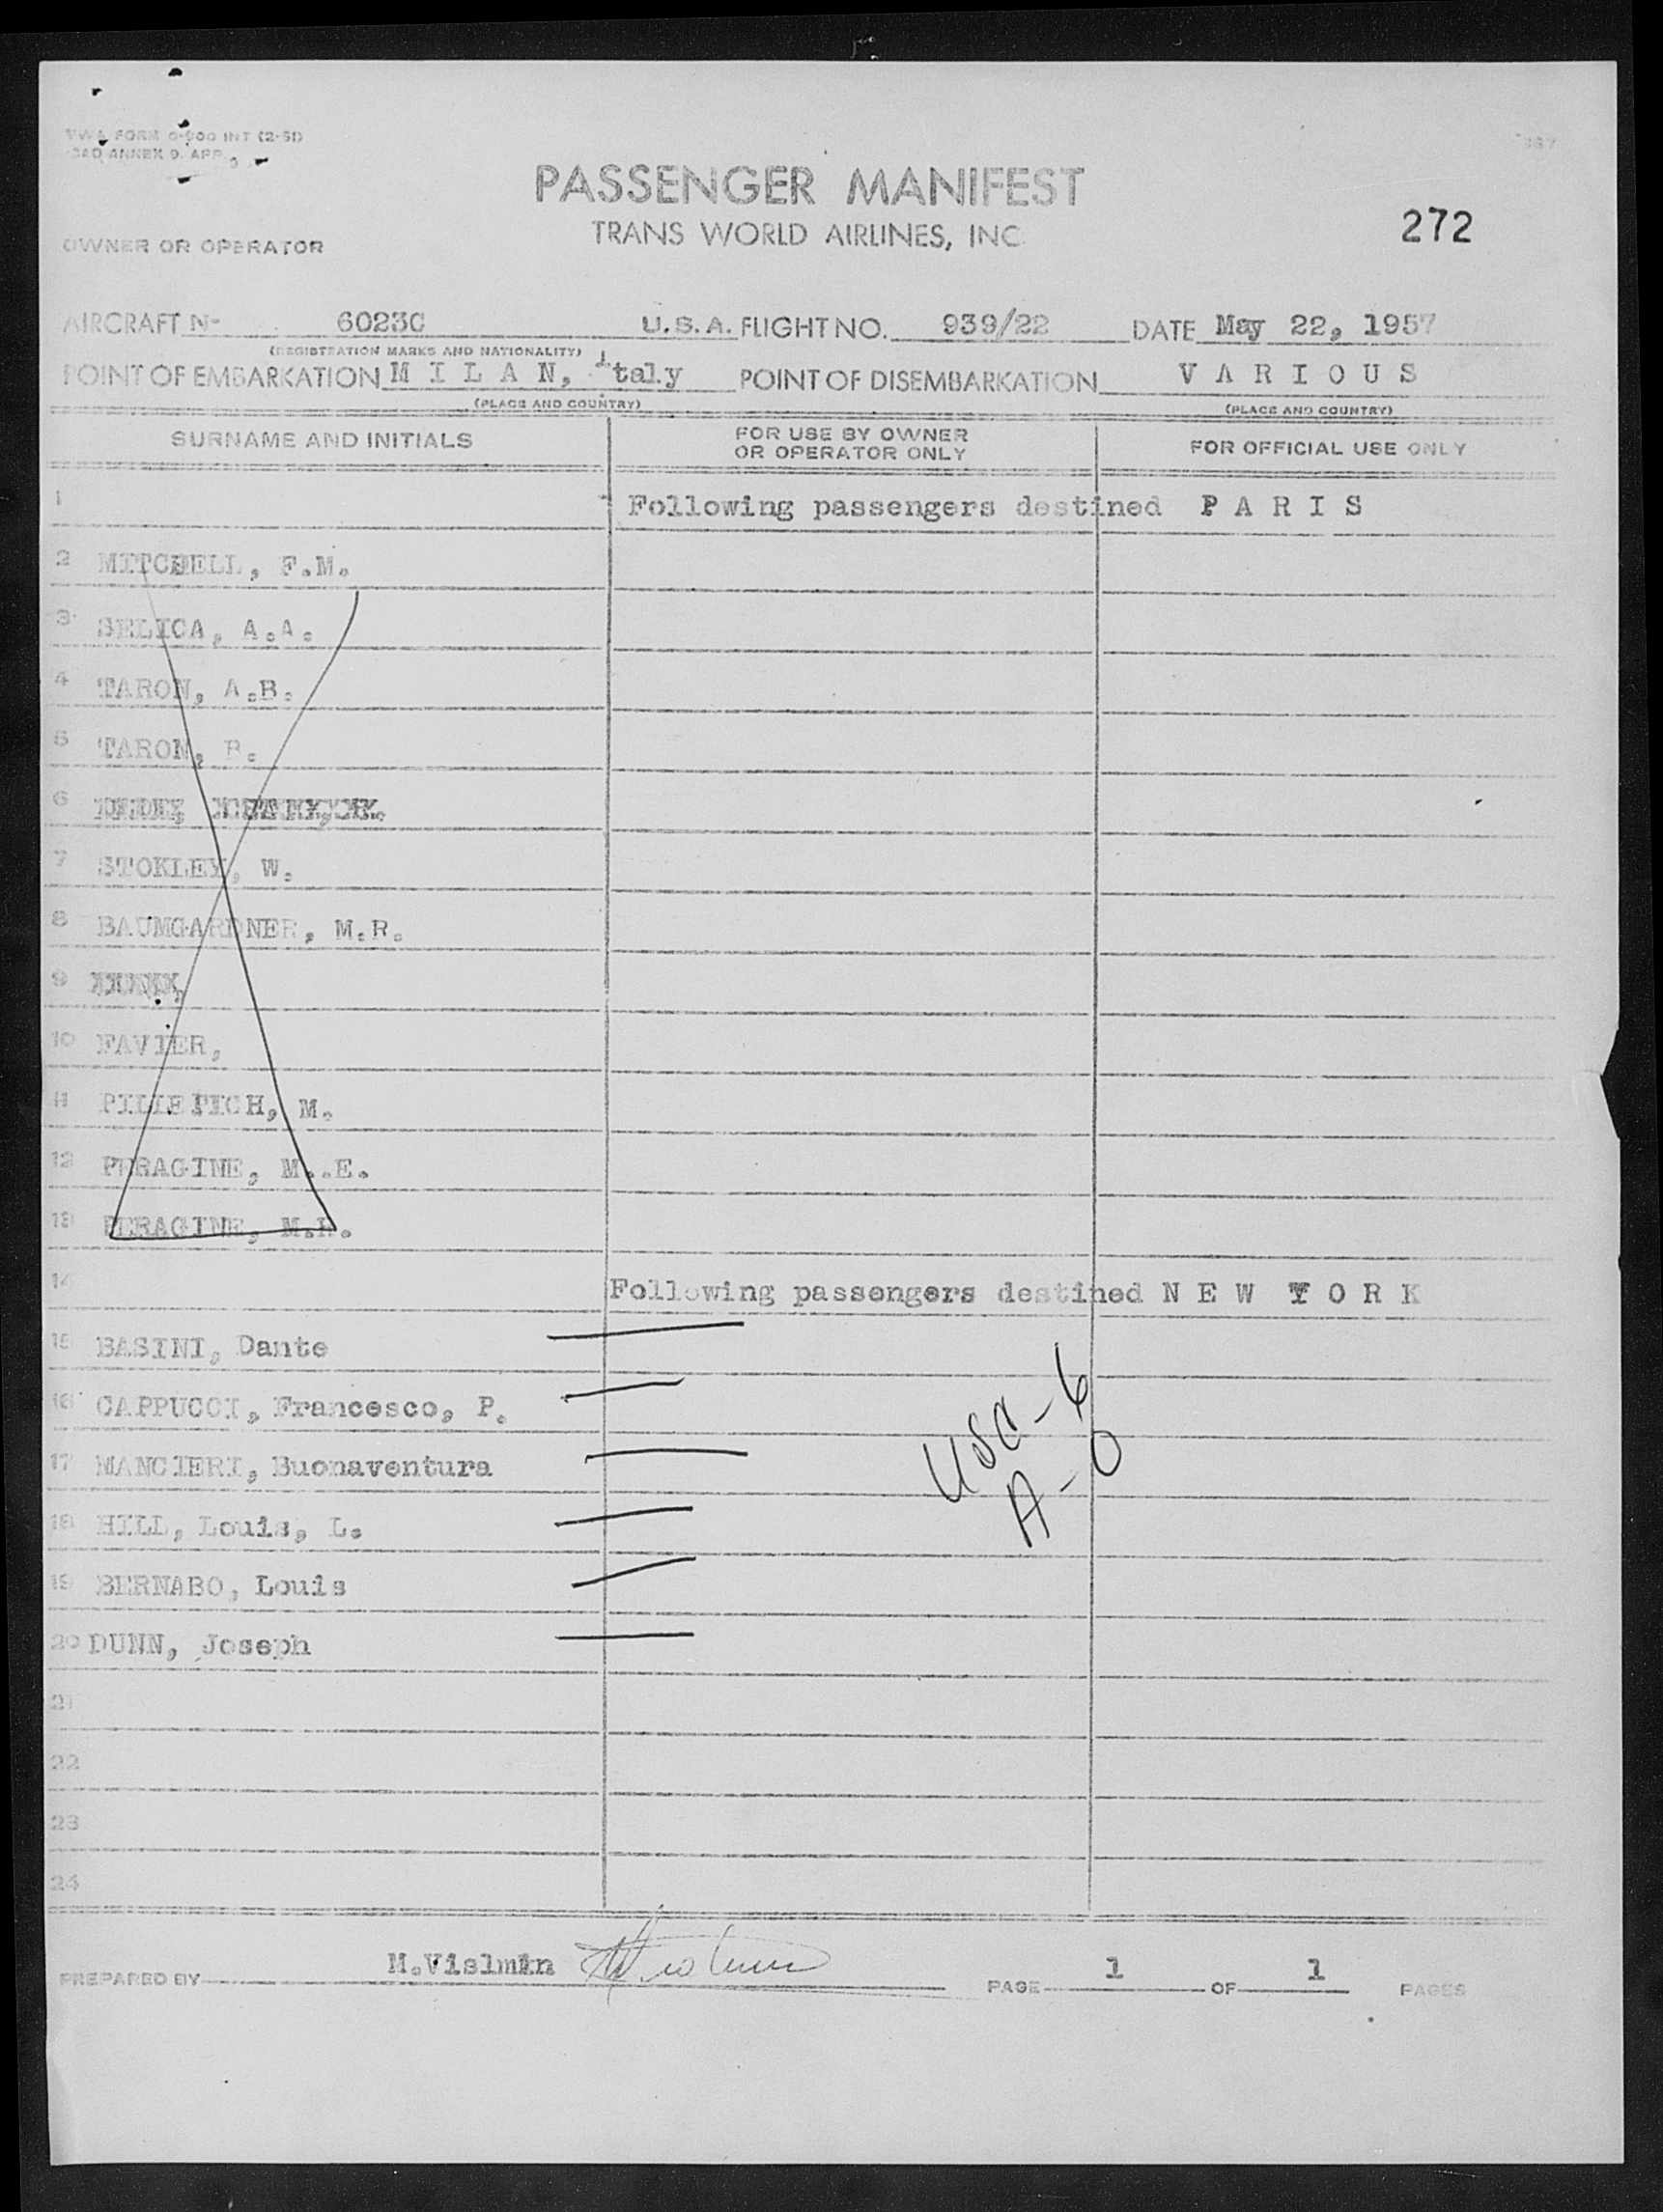 TWA FORM 0-900 INT (2-51)
ICAO ANNEX 9. APP.
PASSENGER MANIFEST
TRANS WORLD AIRLINES, INC.
272
OWNER OR OPERATOR
AIRCRAFT N- 6023C U.S.A. FLIGHT NO. 939/22 DATE May 22, 1957
(REGISTRATION MARKS AND NATIONALITY)
POINT OF EMBARKATION M I L A N, Italy POINT OF DISEMBARKATION V A R I O U S
(PLACE AND COUNTRY) (PLACE AND COUNTRY)
SURNAME AND INITIALS FOR USE BY OWNER OR OPERATOR ONLY FOR OFFICIAL USE ONLY
1 Following passengers destined P A R I S
2 MITCHELL, F.M.
3 SELICA, A.A.
4 TARON, A.B.
5 TARON, B.
6
7 STOKLEY, W.
8 BAUMGARDNER, M.R.
9
10 FAVIER,
11 PILIEPICH, M.
12 PERAGINE, M..E.
13 PERAGINE, M.
14 Following passengers destined N E W Y O R K
15 BASINI, Dante
16 CAPPUCCI, Francesco, P.
17 MANCIERI, Buonaventura
18 HILL, Louis, L.
19 BERNABO, Louis
20 DUNN, Joseph
USC - 6
A - 0
21
22
23
24
PREPARED BY M.Vislmin PAGE 1 OF 1 PAGES